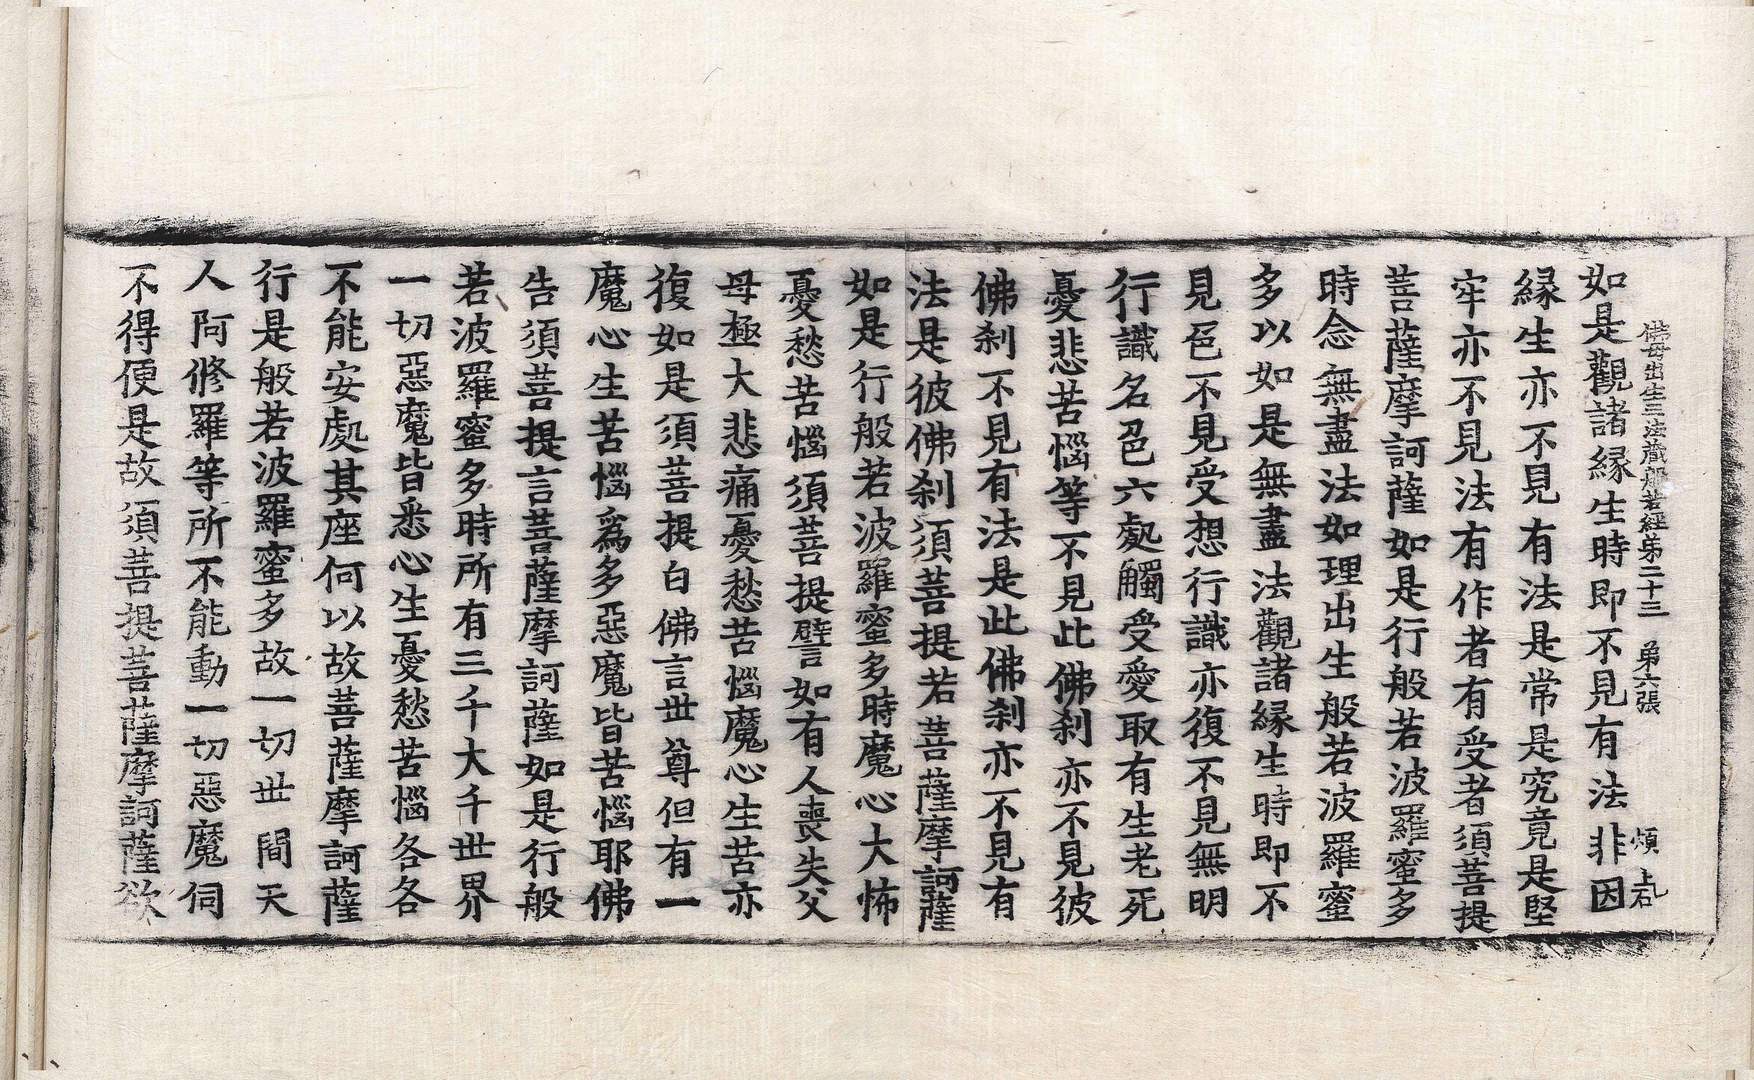 佛母出生三法藏般若經第二十三 第六張 煩
如是觀諸緣生時即不見有法非因
緣生亦不見有法是常是究竟是堅
牢亦不見法有作者有受者須菩提
菩薩摩訶薩如是行般若波羅蜜多
時念無盡法如理出生般若波羅蜜
多以如是無盡法觀諸緣生時即不
見色不見受想行識亦復不見無明
行識名色六處觸受愛取有生老死
憂悲苦惱等不見此佛剎亦不見彼
佛剎不見有法是此佛剎亦不見有
法是彼佛剎須菩提若菩薩摩訶薩
如是行般若波羅蜜多時魔心大怖
憂愁苦惱須菩提譬如有人喪失父
母極大悲痛憂愁苦惱魔心生苦亦
復如是須菩提白佛言世尊但有一
魔心生苦惱為多惡魔皆苦惱耶佛
告須菩提言菩薩摩訶薩如是行般
若波羅蜜多時所有三千大千世界
一切惡魔皆悉心生憂愁苦惱各各
不能安處其座何以故菩薩摩訶薩
行是般若波羅蜜多故一切世間天
人阿修羅等所不能動一切惡魔伺
不得便是故須菩提菩薩摩訶薩欲